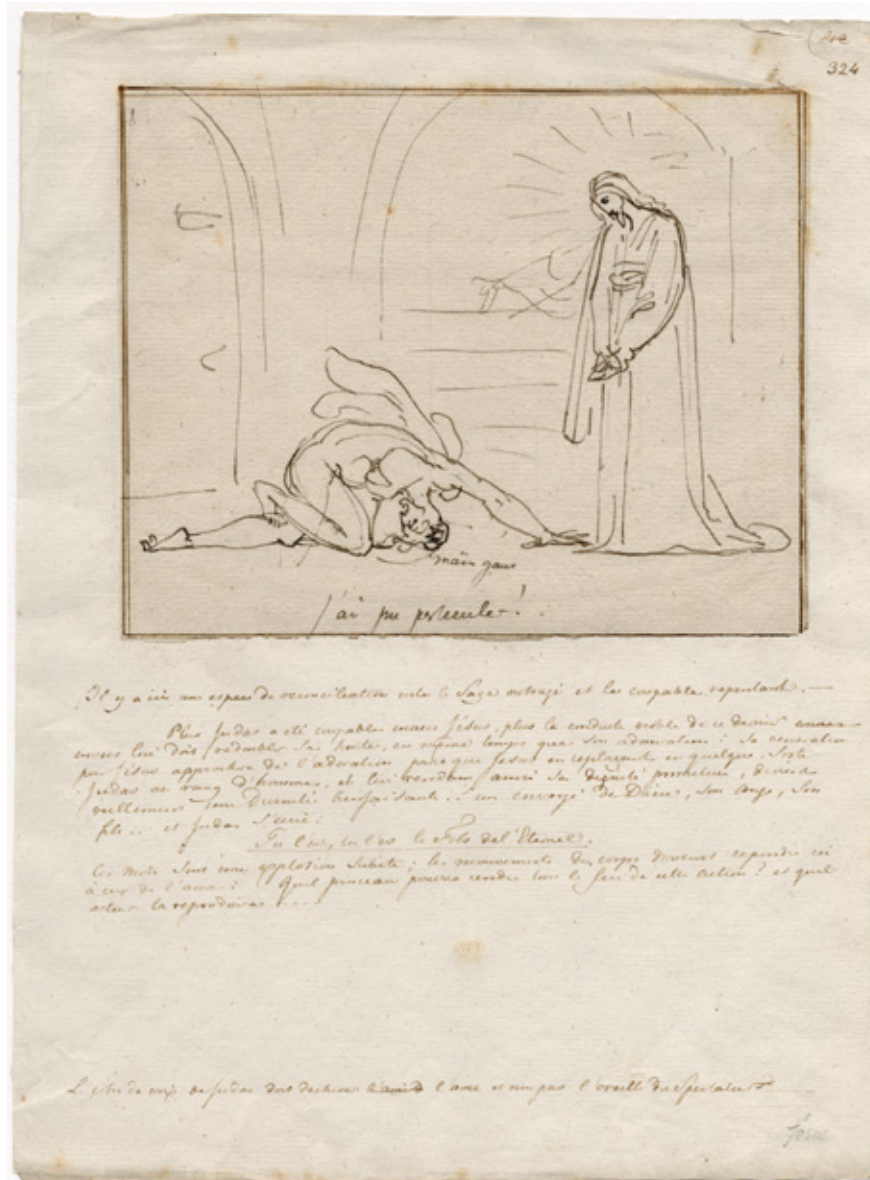 324
main gau
j'ai pu persecuter!
Il y a ici une espece de reconciliation entre le Sage outragé et les coupable repentant. —
Plus Judas a été coupable envers Jésus, plus la conduite noble de ce dernier
envers lui doit redoubler sa honte, en même temps que son admiration : sa veneration
pour Jésus approchera de l'adoration parceque Jesus en replaçant en quelque Sorte
Judas au rang d'hommes, et lui rendant ainsi sa dignité, devient
réellement une Divinité bienfaisante.. un envoyé de Dieu, son ange, son
fils.. et Judas s'écrie :
Tu l'es, tu l'es le Fils de l'Eternel.
Ces mots sont une explosion subite ; les mouvements du corps doivent repondre ici
à ceux de l'ame : Quel pinceau pourra rendre tout le feu de cette action ? et quel
acteur la reproduira ....
Le de voix de Judas doit dechirer l'ame et non pas l'oreille du Spectateur
Jésus